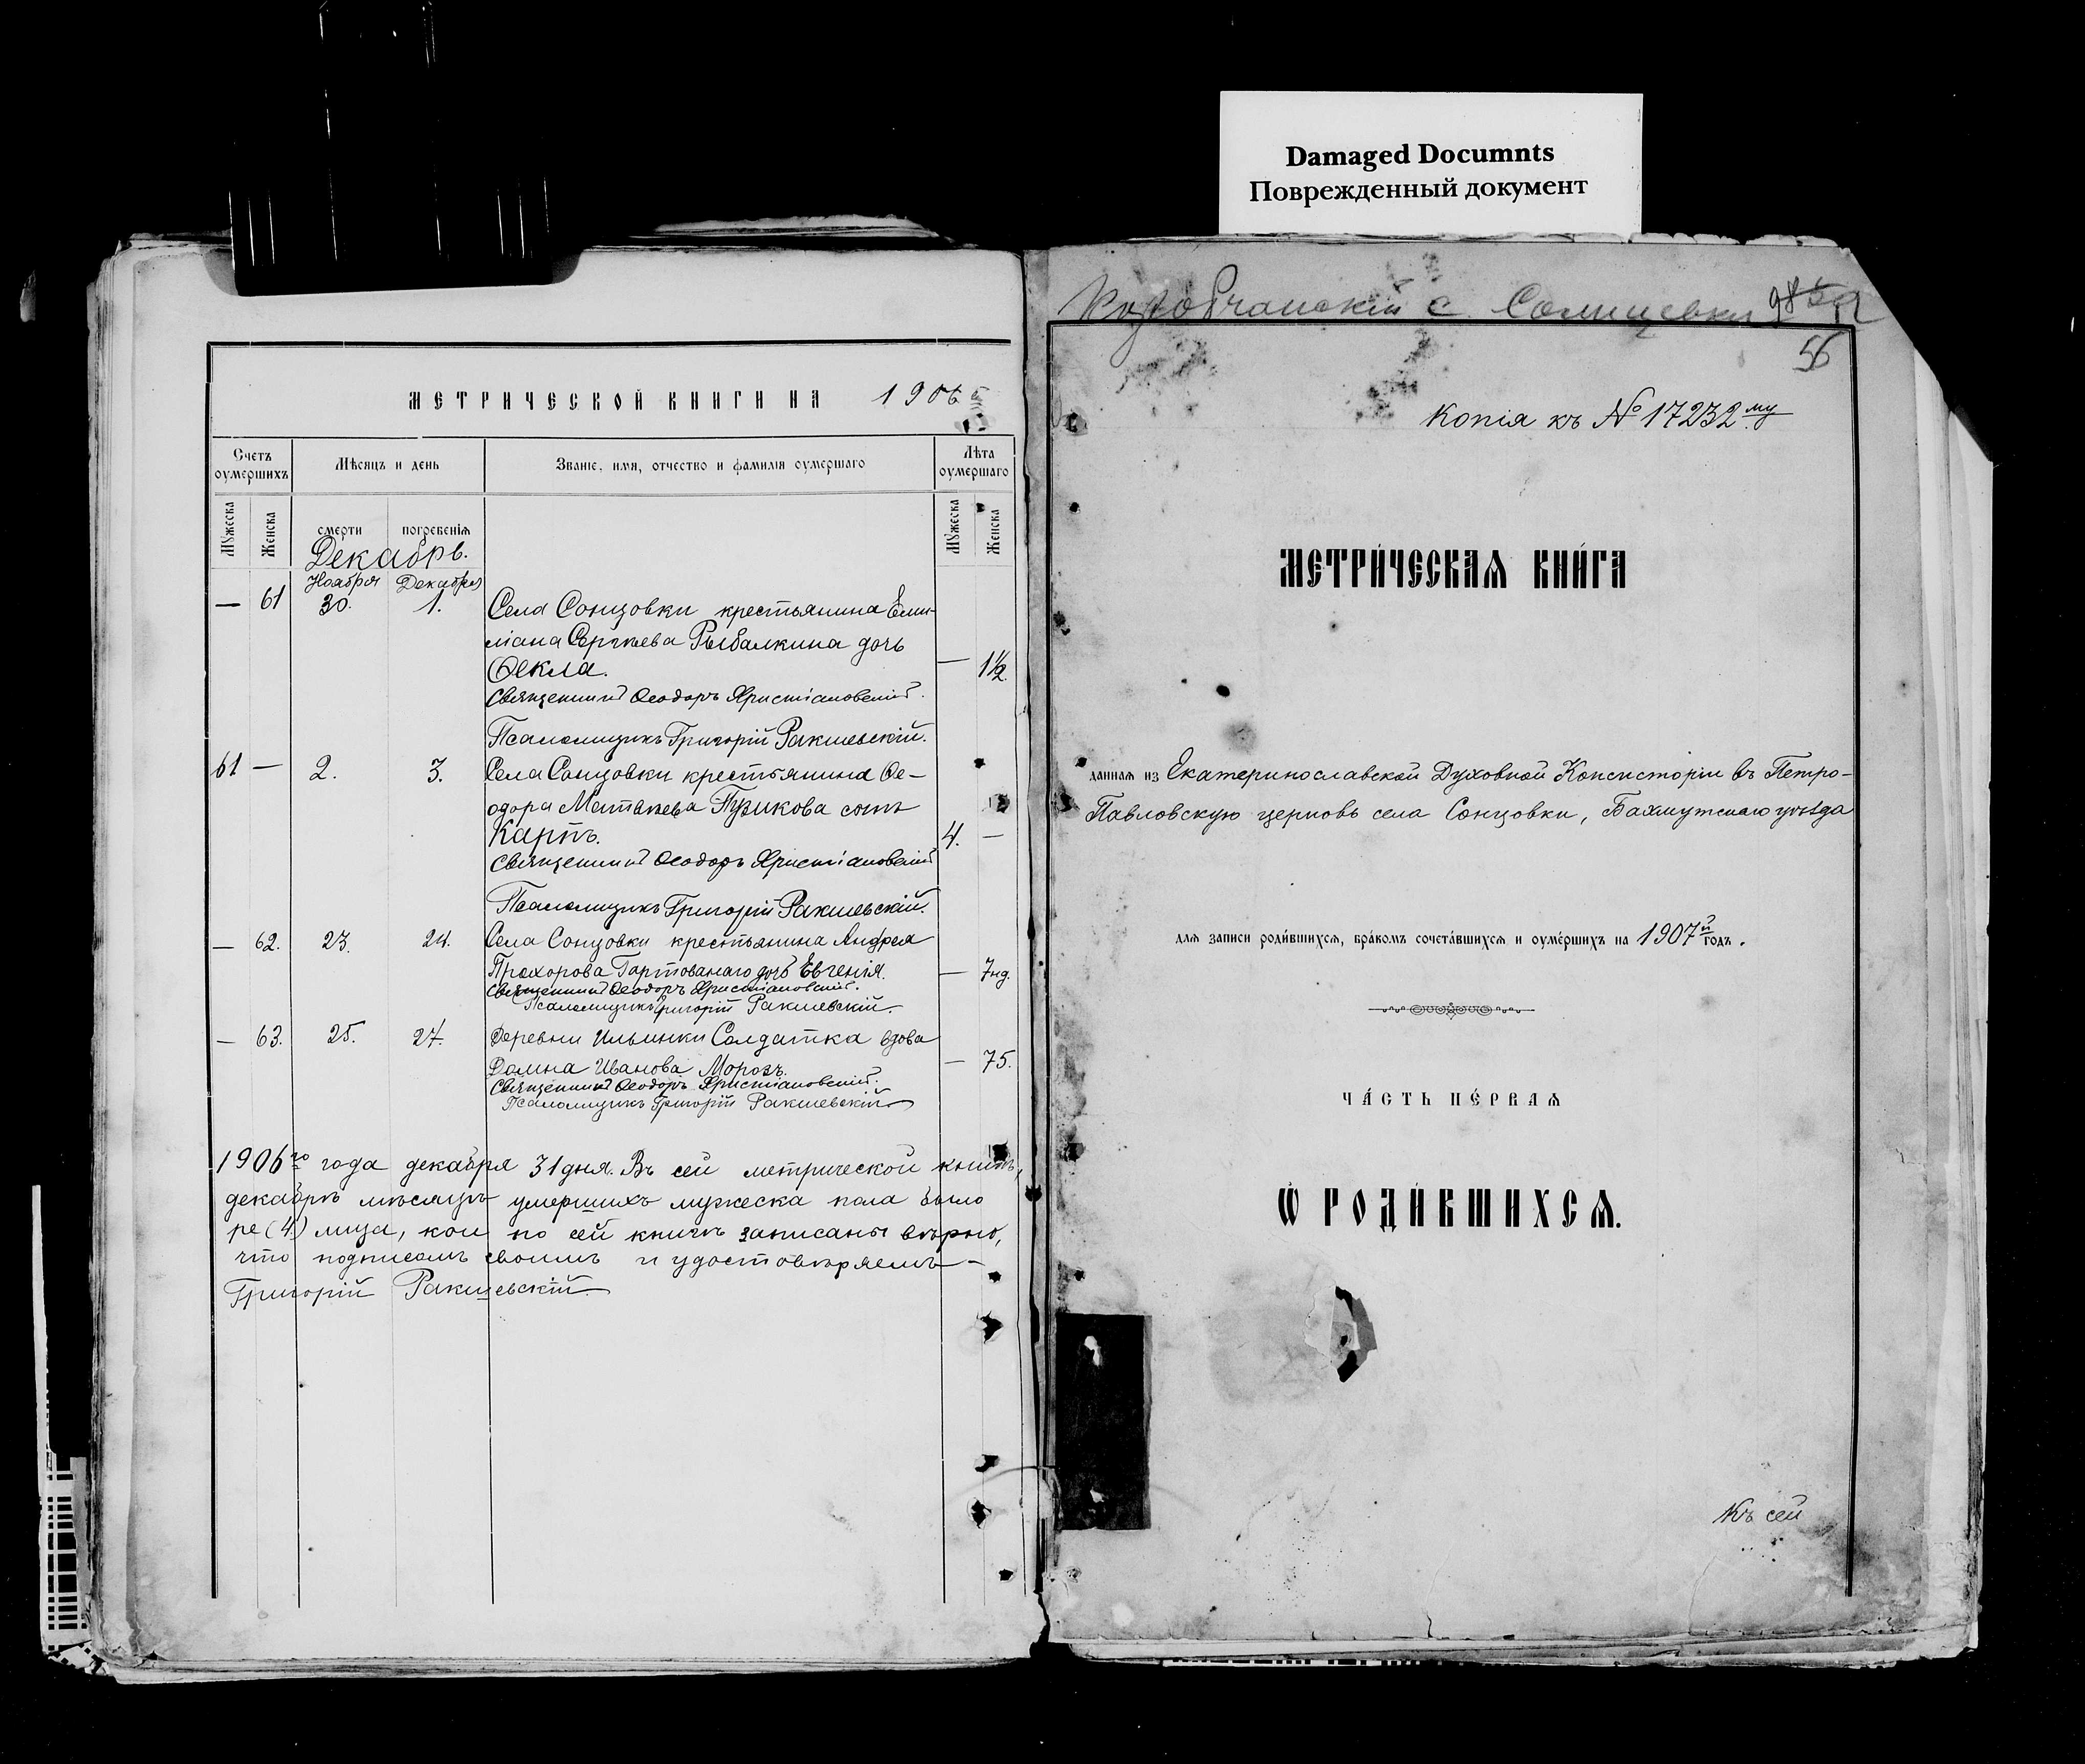 Damaged Documnts
Поврежденный документ
МЕТРИЧЕСКОЙ КНИГИ НА 1906
Счетъ оумершихъ
Мѣсяцъ и день
Званіе, имя, отчество и фамилія оумершаго
Лѣта оумершаго
Мужеска
Женска
смерти
погребенія
Мужеска
Женска
Декабрь.
Ноября Декабря
— 61 30. 1. Села Сонцовки крестьянина Еми-
ліана Сергѣева Рыбалкина дочь
Ѳекла. — 1½.
Священникъ Ѳеодоръ Христіановскій.
Псаломщикъ Григорій Ракшевскій.
61 — 2. 3. Села Сонцовки крестьянина Ѳе-
одора Матвѣева Пузикова сынъ
Карпъ. 4. —
Священникъ Ѳеодоръ Христіановскій
Псаломщикъ Григорій Ракшевскій.
— 62. 23. 24. Села Сонцовки крестьянина Андрея
Прохорова Гартованаго дочь Евгенія. — 7нд.
Священникъ Ѳеодоръ Христіановскій.
Псаломщикъ Григорій Ракшевскій.
— 63. 25. 27. Деревни Ильинки Солдатка вдова
Домна Иванова Морозъ. — 75.
Священникъ Ѳеодоръ Христіановскій.
Псаломщикъ Григорій Ракшевскій
1906го года декабря 31 дня. Въ сей метрической книгѣ,
декабрѣ мѣсяцѣ умершихъ мужеска пола было
ре (4) лица, кои по сей книгѣ записаны вѣрно,
что подписомъ своимъ и удостовѣряемъ —
Григорій Ракшевскій
с. Солнцевки
56
Копія къ № 17232му
МЕТРИ́ЧЕСКАѦ КНИ́ГА
даннаѧ из Екатеринославской Духовной Консисторіи въ Петро-
Павловскую церковь села Сонцовки, Бахмутскаго уѣзда
длѧ записи роди́вшихсѧ, бра́комъ сочета́вшихсѧ и оуме́ршихъ на 1907й годъ.
ЧА́СТЬ ПЕ́РВАѦ
Ѡ РОДИ́ВШИХСѦ.
Къ сей